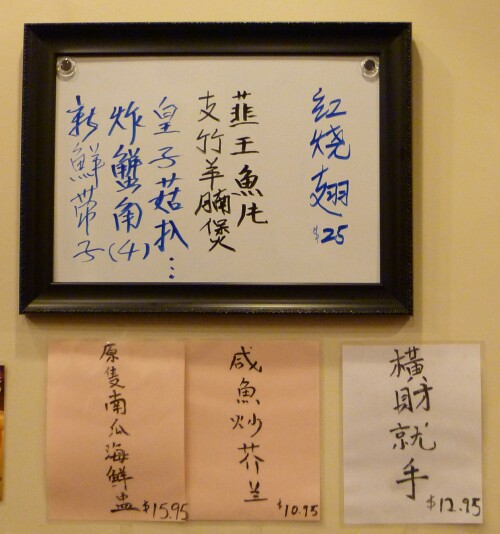 红燒翅
$25
韮王魚片
支竹羊腩煲
皇子菇扒…
炸蟹角(4)
新鮮带子
橫財就手
$12.95
咸魚炒芥兰
$10.95
原隻南瓜海鮮盅
$15.95